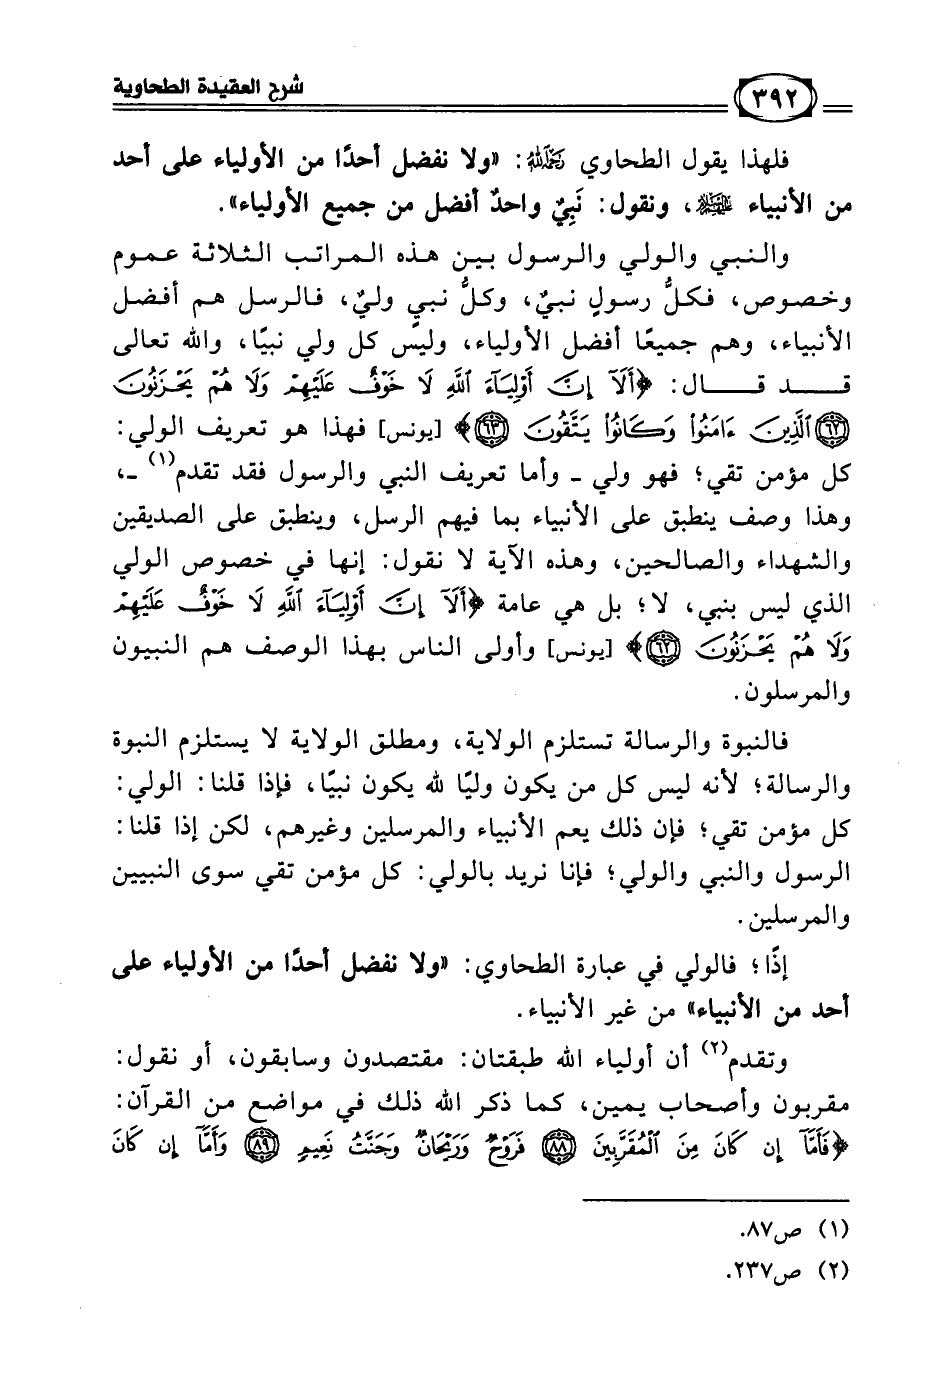 شرح العقيدة الطحاوية
٣٩٢
فلهذا يقول الطحاوي رحمه الله: «ولا نفضل أحدًا من الأولياء على أحد
من الأنبياء ﷺ، ونقول: نَبِيٌّ واحدٌ أفضل من جميع الأولياء».
والنبي والولي والرسول بين هذه المراتب الثلاثة عموم
وخصوص، فكلُّ رسولٍ نبيٌ، وكلُّ نبيٍ وليٌ، فالرسل هم أفضل
الأنبياء، وهم جميعًا أفضل الأولياء، وليس كل ولي نبيًا، والله تعالى
قد قال: ﴿أَلَآ إِنَّ أَوْلِيَآءَ ٱللَّهِ لَا خَوْفٌ عَلَيْهِمْ وَلَا هُمْ يَحْزَنُونَ
٦٢ ٱلَّذِينَ ءَامَنُوا۟ وَكَانُوا۟ يَتَّقُونَ ٦٣﴾ [يونس] فهذا هو تعريف الولي:
كل مؤمن تقي؛ فهو ولي - وأما تعريف النبي والرسول فقد تقدم(١) -،
وهذا وصف ينطبق على الأنبياء بما فيهم الرسل، وينطبق على الصديقين
والشهداء والصالحين، وهذه الآية لا نقول: إنها في خصوص الولي
الذي ليس بنبي، لا؛ بل هي عامة ﴿أَلَآ إِنَّ أَوْلِيَآءَ ٱللَّهِ لَا خَوْفٌ عَلَيْهِمْ
وَلَا هُمْ يَحْزَنُونَ ٦٢﴾ [يونس] وأولى الناس بهذا الوصف هم النبيون
والمرسلون.
فالنبوة والرسالة تستلزم الولاية، ومطلق الولاية لا يستلزم النبوة
والرسالة؛ لأنه ليس كل من يكون وليًا لله يكون نبيًا، فإذا قلنا: الولي:
كل مؤمن تقي؛ فإن ذلك يعم الأنبياء والمرسلين وغيرهم، لكن إذا قلنا:
الرسول والنبي والولي؛ فإنا نريد بالولي: كل مؤمن تقي سوى النبيين
والمرسلين.
إذًا؛ فالولي في عبارة الطحاوي: «ولا نفضل أحدًا من الأولياء على
أحد من الأنبياء» من غير الأنبياء.
وتقدم(٢) أن أولياء الله طبقتان: مقتصدون وسابقون، أو نقول:
مقربون وأصحاب يمين، كما ذكر الله ذلك في مواضع من القرآن:
﴿فَأَمَّآ إِن كَانَ مِنَ ٱلْمُقَرَّبِينَ ٨٨ فَرَوْحٌ وَرَيْحَانٌ وَجَنَّتُ نَعِيمٍ ٨٩ وَأَمَّآ إِن كَانَ
(١) ص٨٧.
(٢) ص٢٣٧.